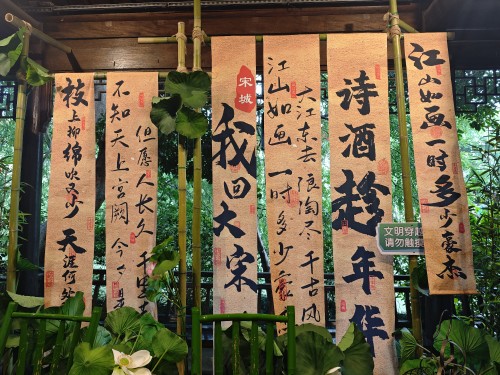 江山如画一时多少豪杰
文明穿
请勿触
诗酒趁年华
大江东去浪淘尽千古风
江山如画一时多少豪
宋城
我回大宋
但愿人长久千里
不知天上宫阙今夕是
枝上柳绵吹又少天涯何处